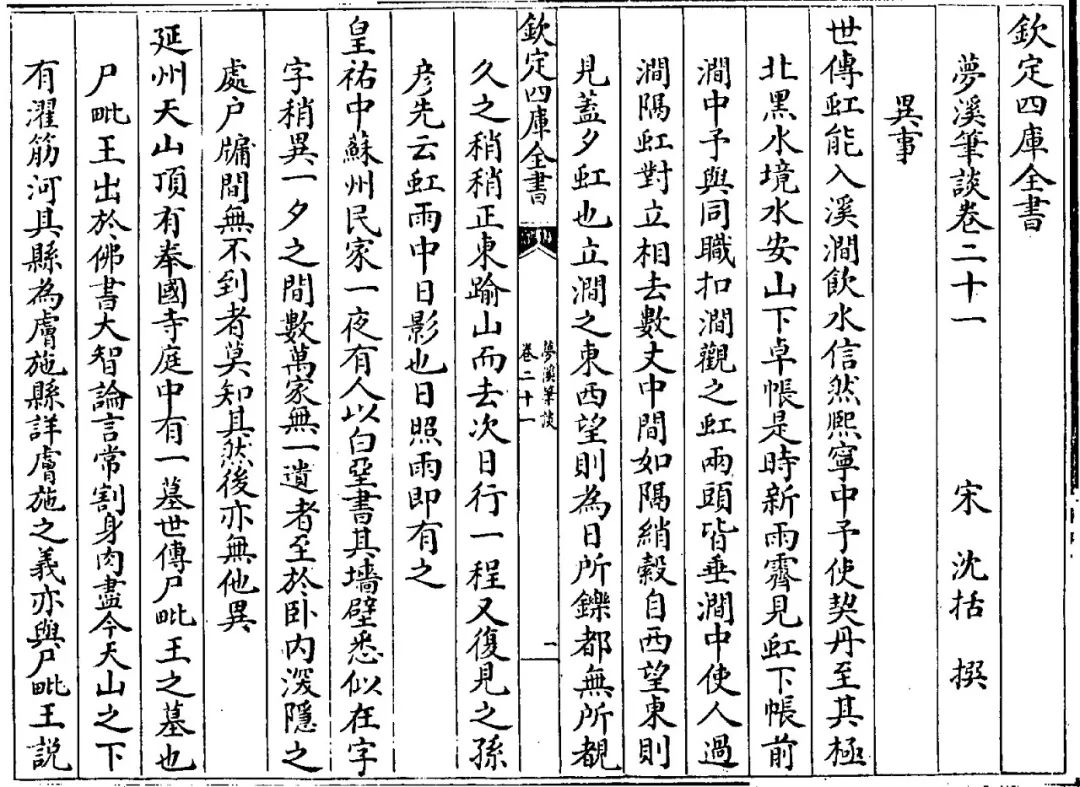 欽定四庫全書
夢溪筆談卷二十一
宋 沈括 撰
異事
世傳虹能入溪澗飲水信然熙寧中予使契丹至其極
北黑水境永安山下卓帳是時新雨霽見虹下帳前
澗中予與同職扣澗觀之虹兩頭皆垂澗中使人過
澗隔虹對立相去數丈中間如隔綃縠自西望東則
見蓋夕虹也立澗之東西望則為日所鑠都無所覩
欽定四庫全書
夢溪筆談
卷二十一
一
久之稍稍正東踰山而去次日行一程又復見之孫
彦先云虹雨中日影也日照雨即有之
皇祐中蘇州民家一夜有人以白堊書其墻壁悉似在字
字稍異一夕之間數萬家無一遺者至於卧内深隱之
處户牖間無不到者莫知其然後亦無他異
延州天山頂有奉國寺庭中有一墓世傳尸毗王之墓也
尸毗王出於佛書大智論言常割身肉盡今天山之下
有濯筋河其縣為膚施縣詳膚施之義亦與尸毗王説